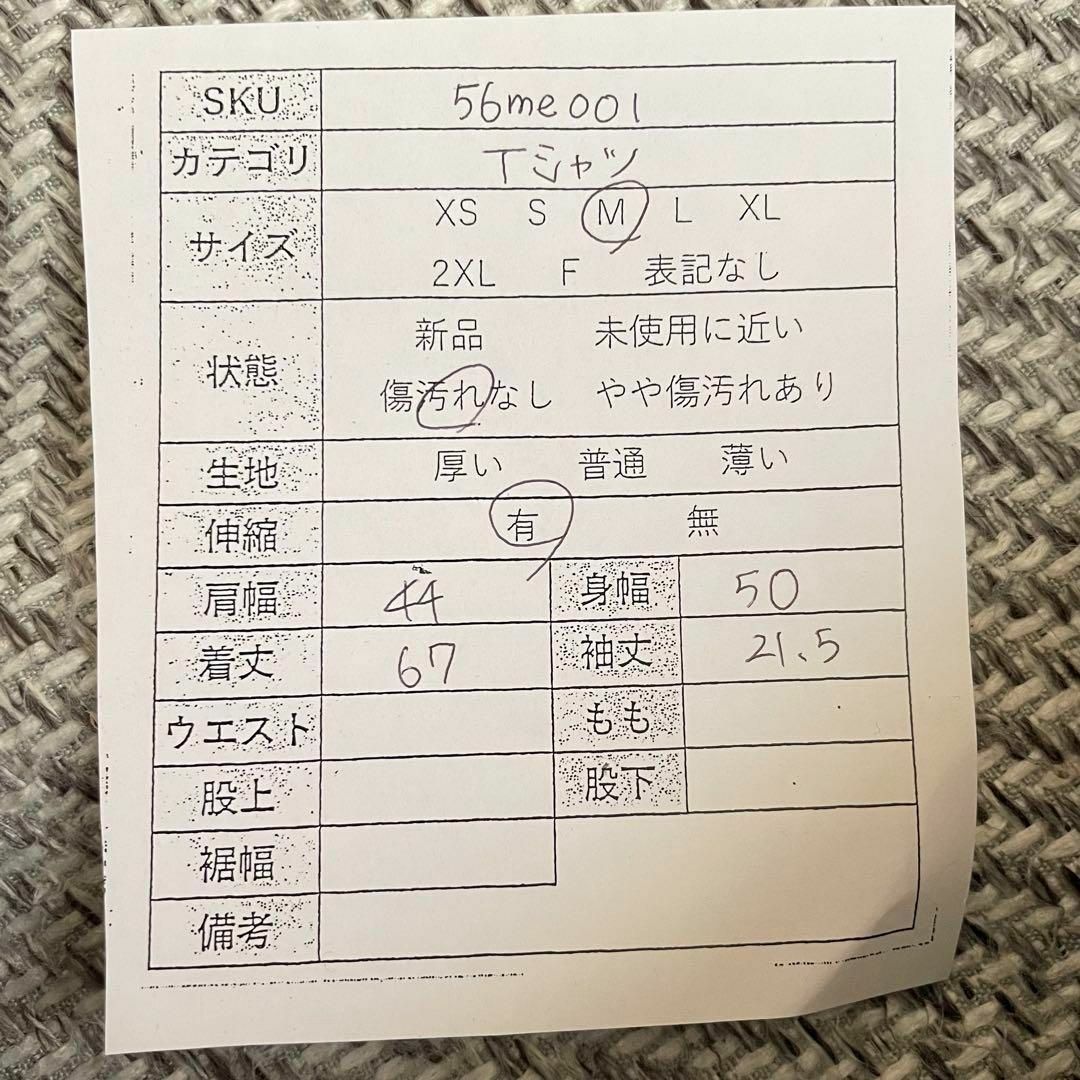 SKU 56me001
カテゴリ Tシャツ
サイズ XS S M L XL
2XL F 表記なし
状態 新品 未使用に近い
傷汚れなし やや傷汚れあり
生地 厚い 普通 薄い
伸縮 有 無
肩幅 44 身幅 50
着丈 67 袖丈 21.5
ウエスト もも
股上 股下
裾幅
備考